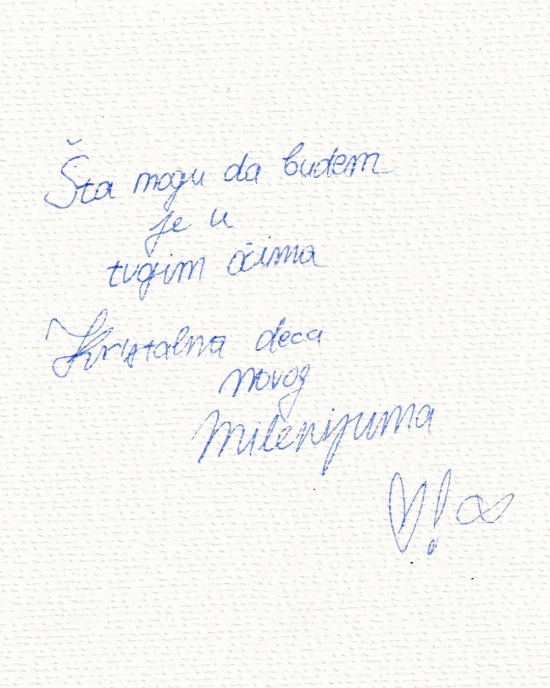 Šta mogu da budem
je u
tuđim očima
Kristalna deca
novog
Milenijuma